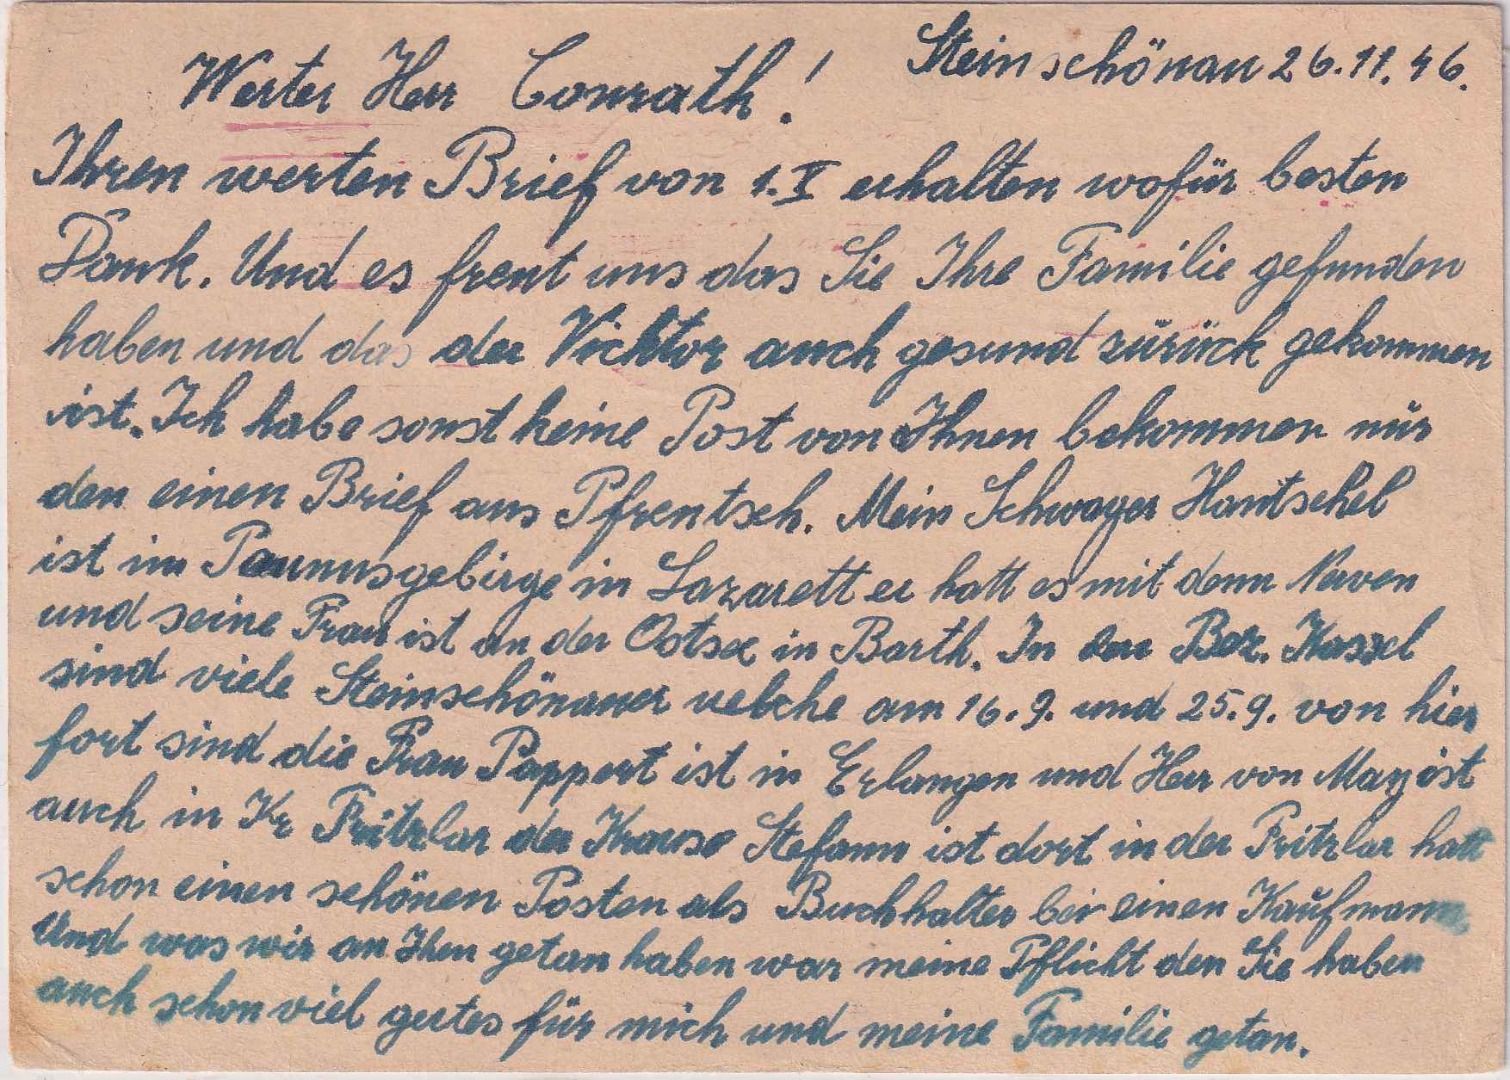 Steinschönau 26.11.46.
Werter Herr Conrath!
Ihren werten Brief von 1.X erhalten wofür besten
Dank. Und es freut uns das Sie Ihre Familie gefunden
haben und das der Vicktor auch gesund zurück gekommen
ist. Ich habe sonst keine Post von Ihnen bekommen nur
den einen Brief aus Pfrentsch. Mein Schwager Hantschel
ist im Taunusgebirge in Lazarett er hatt es mit denn Nerven
und seine Frau ist an der Ostsee in Barth. In den Bez. Kassel
sind viele Steinschönauer welche am 16.9. und 25.9. von hier
fort sind die Frau Pappert ist in Erlangen und Herr von Marj ist
auch in Kr Fritzlar der Krause Stefann ist dort in der Fritzlar hatt
schon einen schönen Posten als Buchhalter bei einen Kaufmann
Und was wir an Ihen getan haben war meine Pflicht den Sie haben
auch schon viel gutes für mich und meine Familie getan.